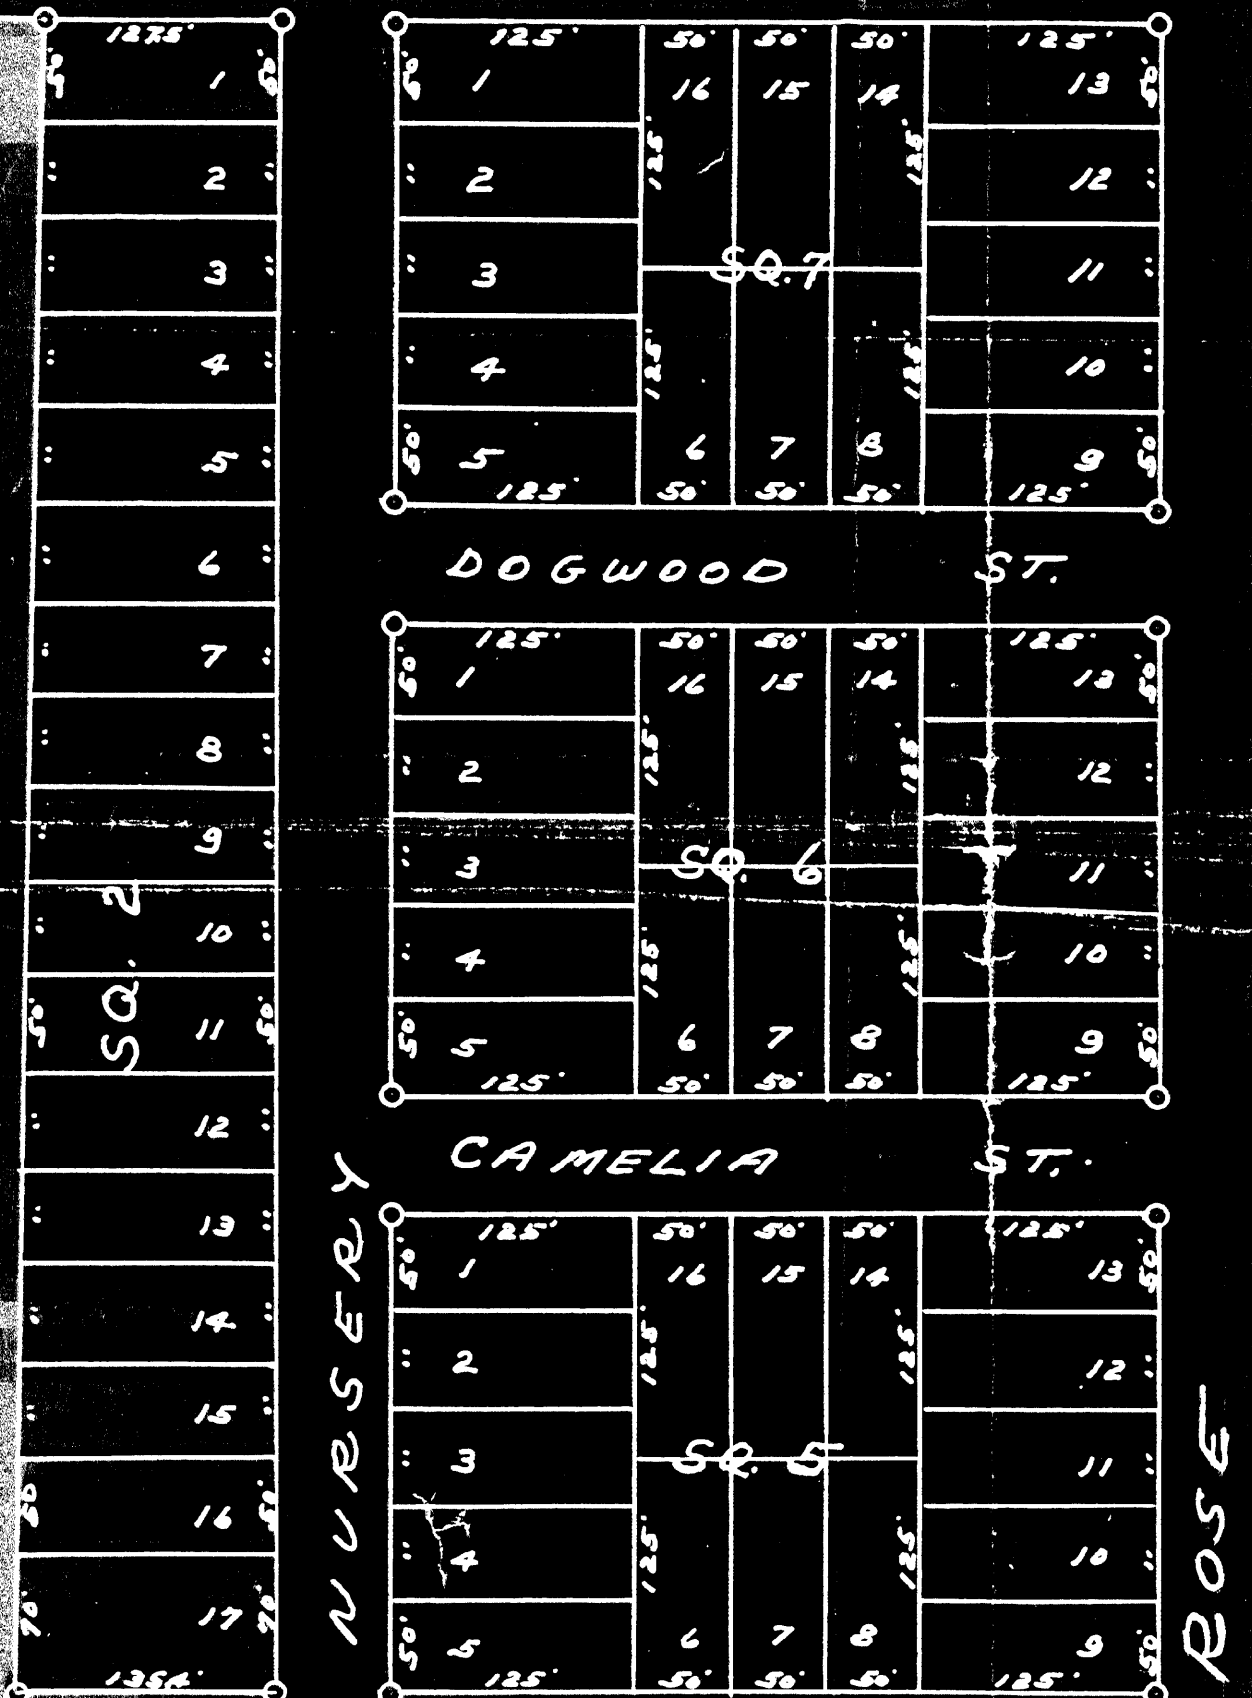 127.5'
50' 1 50'
" 2 "
" 3 "
" 4 "
" 5 "
" 6 "
" 7 "
" 8 "
" 9 "
" 10 "
50' 11 50'
" 12 "
" 13 "
" 14 "
" 15 "
50' 16 50'
70' 17 70'
SQ. 2
NURSERY
125' 50' 50' 50' 125'
50' 1 16 15 14 13 50'
125' 125'
" 2 12 "
SQ. 7
" 3 11 "
125' 125'
" 4 10 "
50' 5 6 7 8 9 50'
125' 50' 50' 50' 125'
DOGWOOD ST.
125' 50' 50' 50' 125'
50' 1 16 15 14 13 50'
125' 125'
" 2 12 "
SQ. 6
" 3 11 "
125' 125'
" 4 10 "
50' 5 6 7 8 9 50'
125' 50' 50' 50' 125'
CAMELIA ST.
125' 50' 50' 50' 125'
50' 1 16 15 14 13 50'
125' 125'
" 2 12 "
SQ. 5
" 3 11 "
125' 125'
" 4 10 "
50' 5 6 7 8 9 50'
125' 50' 50' 50' 125'
ROSE